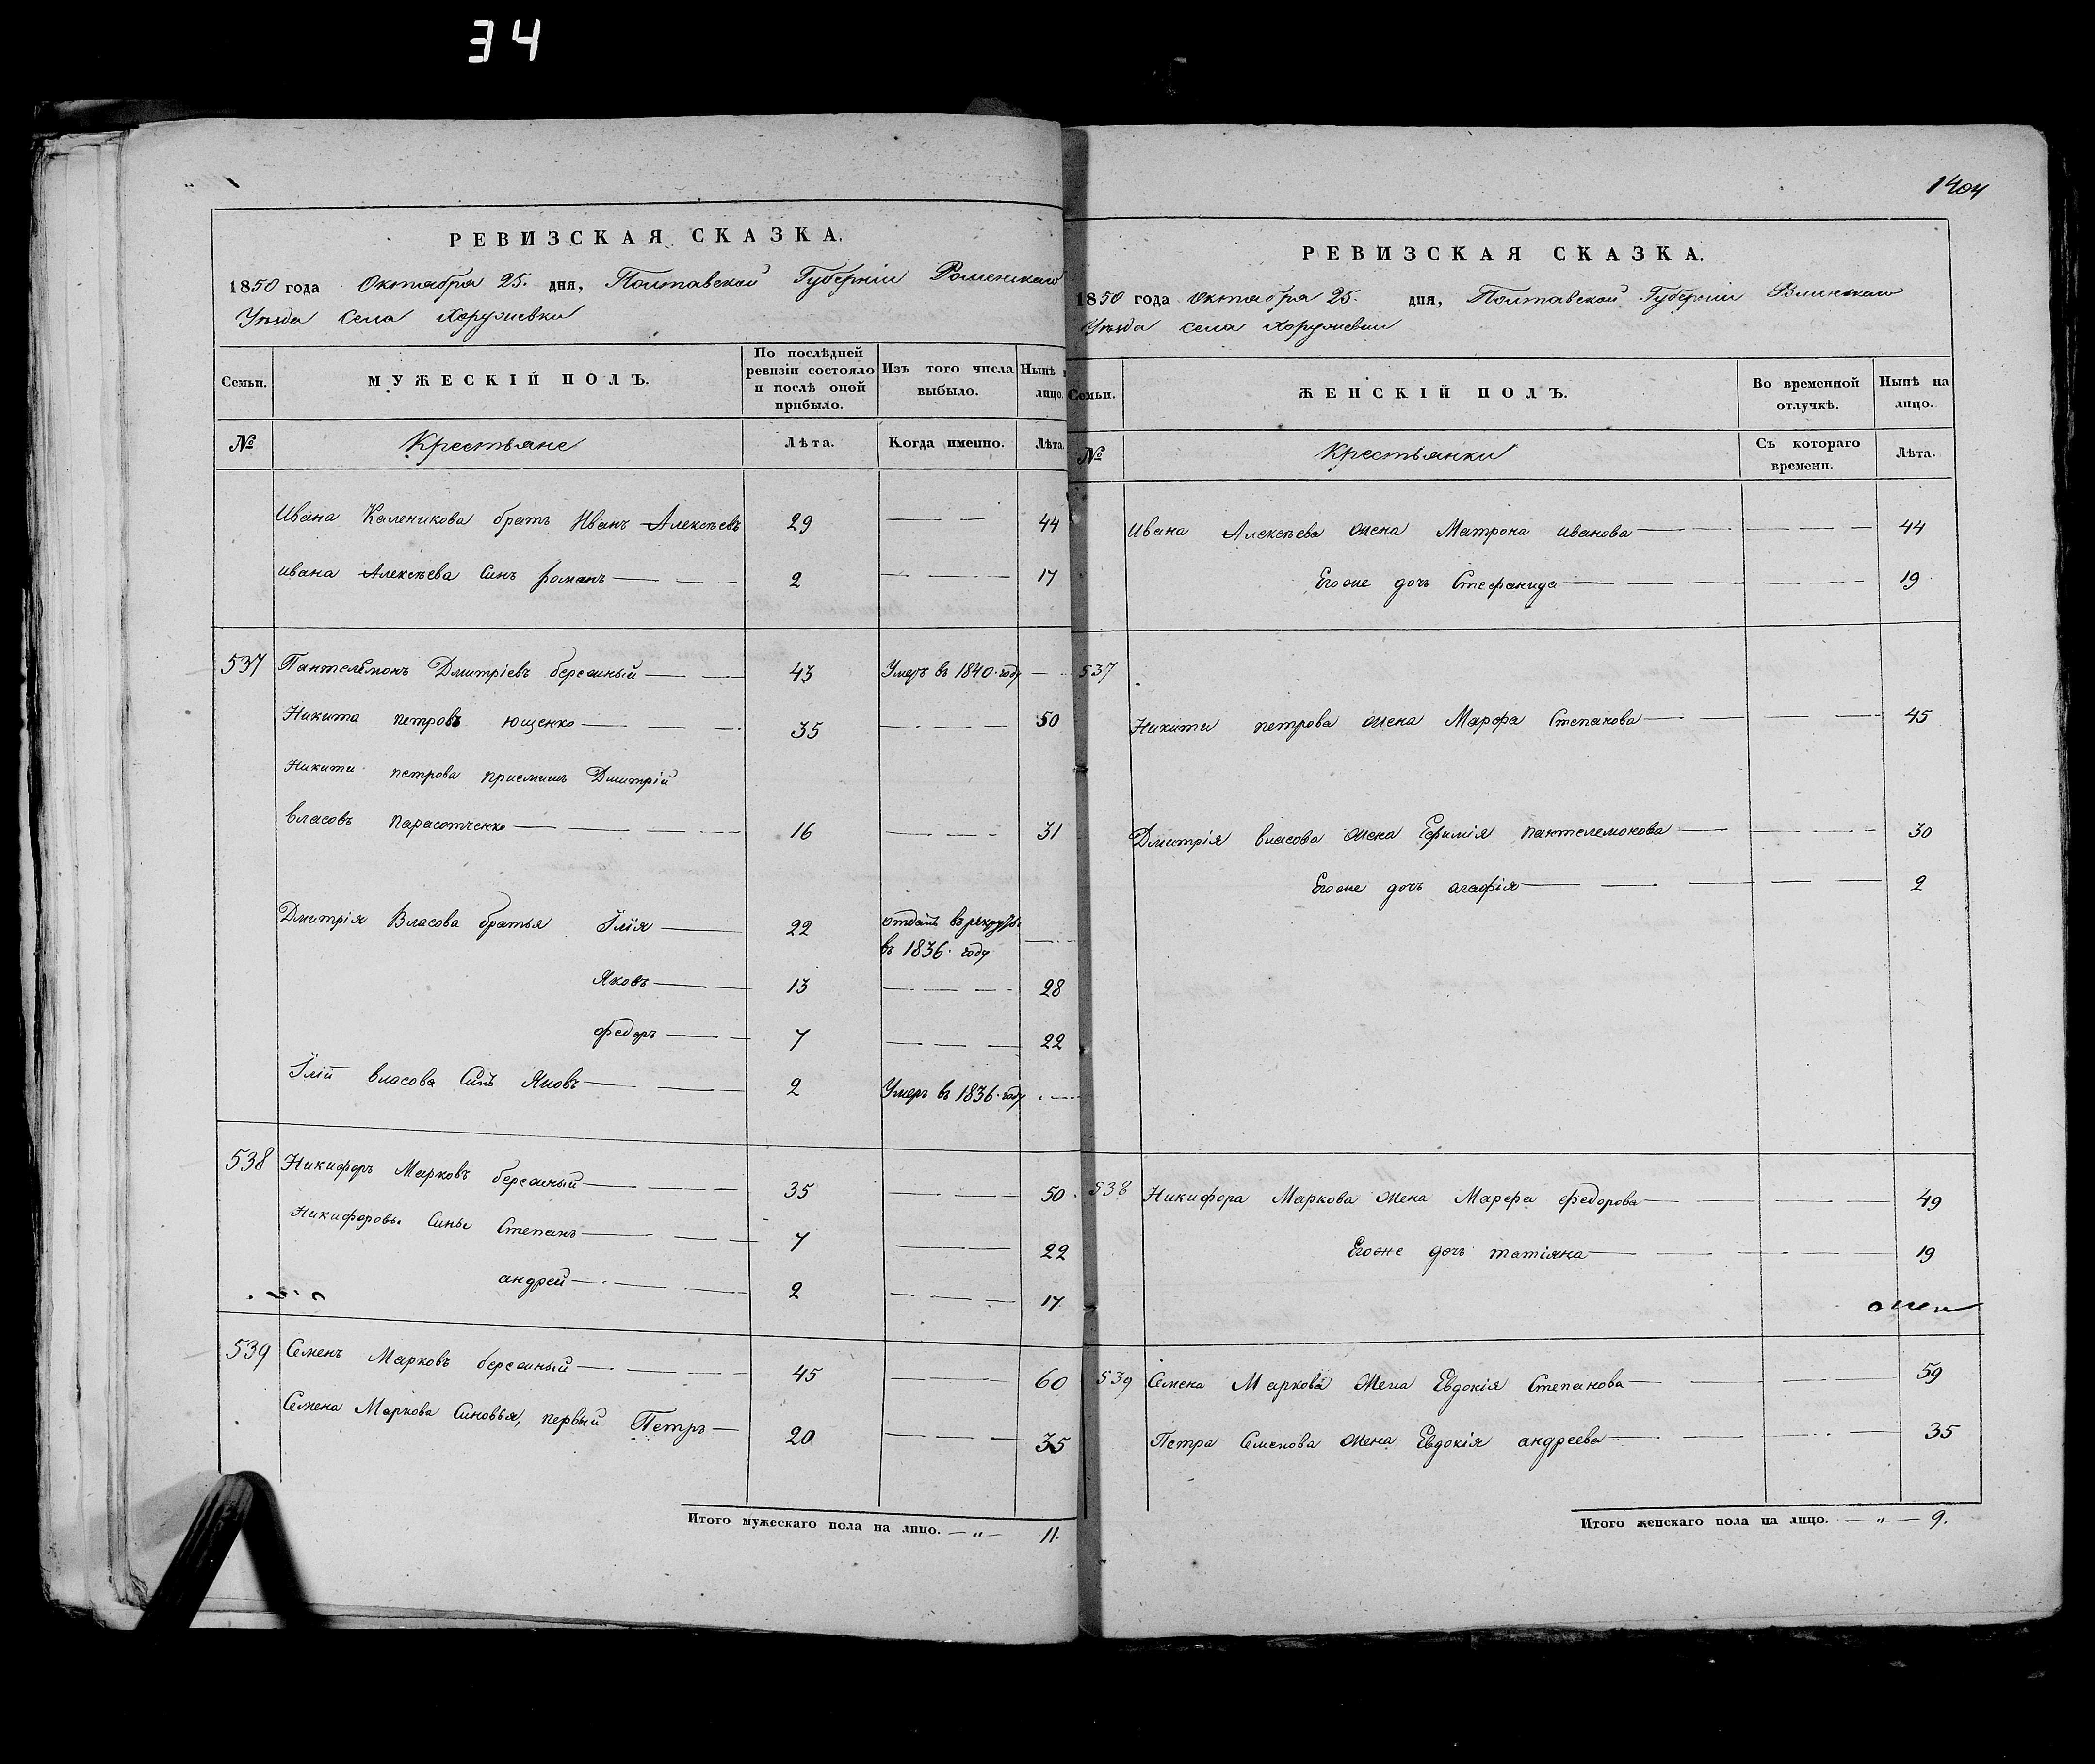 34
РЕВИЗСКАЯ СКАЗКА.
1850 года Октября 25. дня, Полтавской Губерніи Роменскаго
Уѣзда Села Хоружевки
Семьи. МУЖЕСКІЙ ПОЛЪ. По послѣдней ревизіи состояло и послѣ оной прибыло. Изъ того числа выбыло. Нынѣ на лицо.
№ Крестьяне Лѣта. Когда именно. Лѣта.
Ивана Каленикова братъ Иванъ Алексѣевъ 29 44
Ивана Алексѣева Синъ Романъ 2 17
537 Пантелѣмонъ Дмитріевъ бережный 43 Умеръ въ 1840 году
Никита петровъ ющенко 35 50
Никиты петрова приемишъ Дмитрій
власовъ парасотченко 16 31
Дмитрія Власова братья Ілія 22 отданъ въ рекруты
въ 1836 году
Яковъ 13 28
Федоръ 7 22
Іліи власова Синъ Яковъ 2 Умеръ въ 1836 году
538 Никифоръ Марковъ бережный 35 50
Никифоровы Сины Степанъ 7 22
андрей 2 17
539 Семенъ Марковъ бережный 45 60
Семена Маркова Синовья, первый Петръ 20 35
Итого мужескаго пола на лицо. 11.
1404
РЕВИЗСКАЯ СКАЗКА.
1850 года Октября 25. дня, Полтавской Губерніи Роменскаго
Уѣзда Села Хоружевки
Семьи. ЖЕНСКІЙ ПОЛЪ. Во временной отлучкѣ. Нынѣ на лицо.
№ Крестьянки Съ котораго времени. Лѣта.
Ивана Алексѣева жена Матрона иванова 44
Егоже дочь Стефанида 19
537
Никиты петрова жена Марфа Степанова 45
Дмитрія власова жена Ефимія пантелемонова 30
Егоже дочь агафія 2
538 Никифора Маркова жена Марфа федорова 49
Егоже дочь татіяна 19
539 Семена Маркова жена Евдокія Степанова 59
Петра Семенова жена Евдокія андреева 35
Итого женскаго пола на лицо. 9.